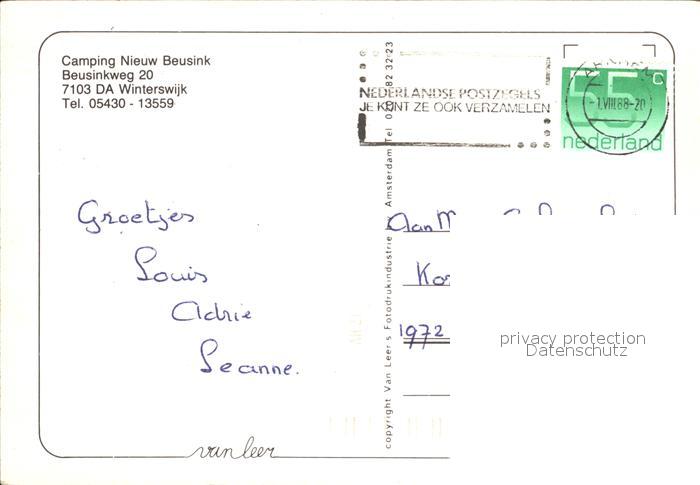 Camping Nieuw Beusink
Beusinkweg 20
7103 DA Winterswijk
Tel. 05430 - 13559
NEDERLANDSE POSTZEGELS
JE KUNT ZE OOK VERZAMELEN
-1.VIII.88-20
55c
nederland
Groetjes
Louis
Adrie
Leanne.
Aan
1972
copyright Van Leer's Fotodrukindustrie Amsterdam Tel 020
privacy protection
Datenschutz
van leer